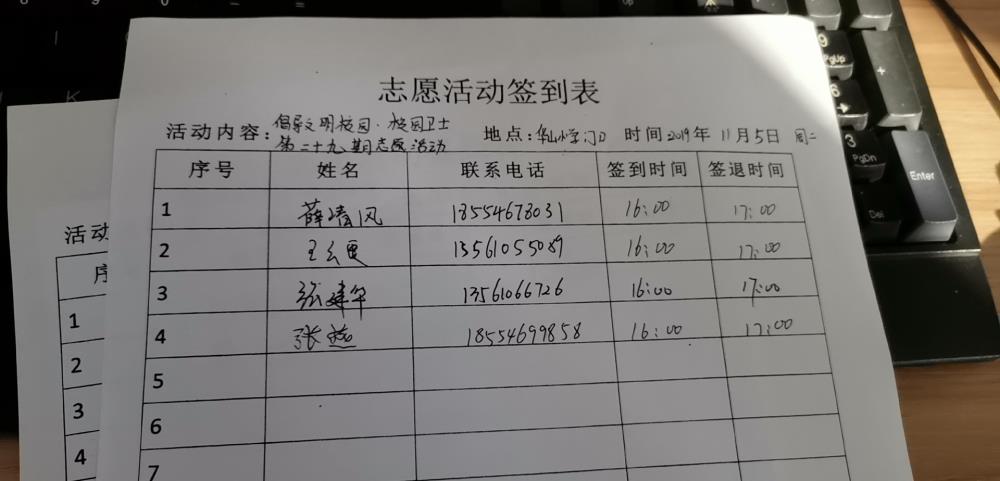 志愿活动签到表
活动内容：倡导文明校园·校园卫士 地点：华山小学门口 时间 2019年 11月5日 周二
第二十九期志愿活动
序号 姓名 联系电话 签到时间 签退时间
1 薛清风 18554678031 16:00 17:00
2 王 13561055089 16:00 17:00
3 张建华 13561066726 16:00 17:00
4 张燕 18554699858 16:00 17:00
5
6
7
活动
序
1
2
3
4
9
PgUp
+
6
3
PgDn
Enter
Del
K